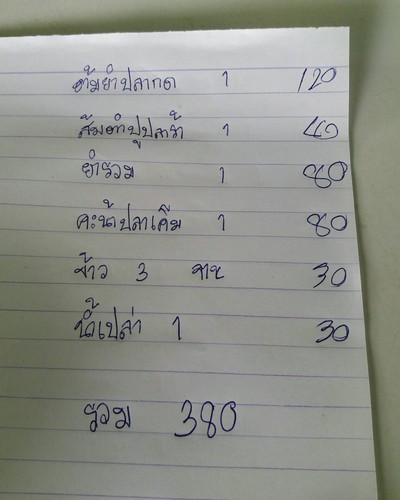 ต้มยำปลากด 1 120
ส้มตำปูปลาร้า 1 40
ยำรวม 1 80
คะน้าปลาเค็ม 1 80
ข้าว 3 จาน 30
น้ำเปล่า 1 30
รวม 380